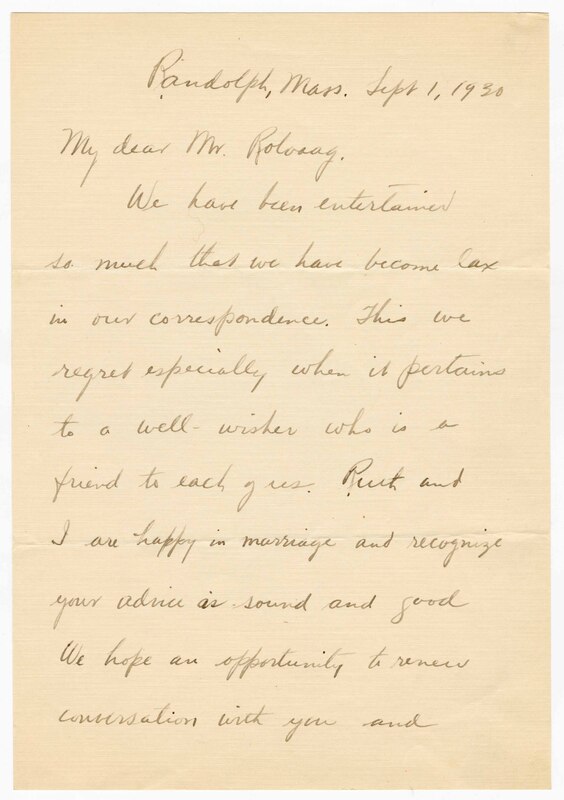 Randolph, Mass. Sept 1, 1930
My dear Mr. Rolvaag.
We have been entertained
so much that we have become lax
in our correspondence. This we
regret especially when it pertains
to a well-wisher who is a
friend to each of us. Ruth and
I are happy in marriage and recognize
your advice as sound and good
We hope an opportunity to renew
conversation with you and